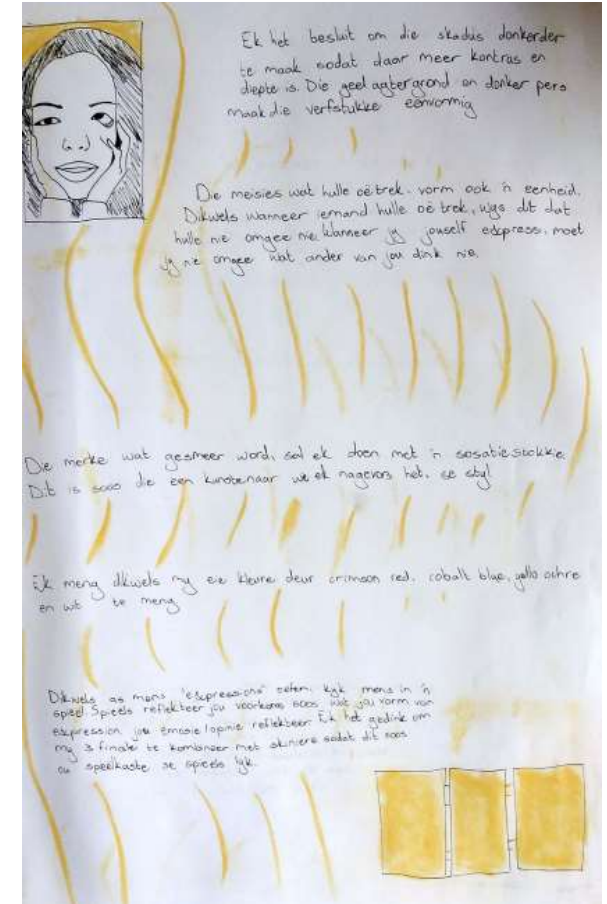 Ek het besluit om die skadus donkerder
te maak sodat daar meer kontras en
diepte is. Die geel agtergrond en donker pers
maak die verfstukke eenvormig
Die meisies wat hulle oë trek, vorm ook 'n eenheid.
Dikwels wanneer iemand hulle oë trek, wys dit dat
hulle nie omgee nie. Wanneer jy jouself express, moet
jy nie omgee wat ander van jou dink nie.
Die merke wat gesmeer word, sal ek doen met 'n sosatiestokkie.
Dit is soos die een kunstenaar wie ek nagevors het, se styl
Ek meng dikwels my eie kleure deur crimson red, cobalt blue, yello ochre
en wit te meng
Dikwels as mens "expressions" oefen, kyk mens in 'n
spieël. Spieëls reflekteer jou voorkoms soos wat jou vorm van
expression jou emosie/opinie reflekteer. Ek het gedink om
my 3 finale te kombineer met skniere sodat dit soos
ou speelkaste se spieëls lyk.